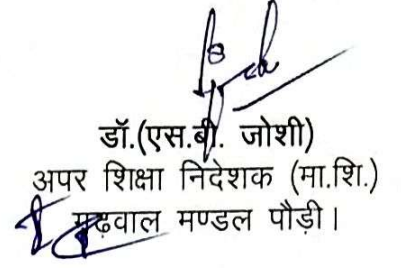 डॉ.(एस.बी. जोशी)
अपर शिक्षा निदेशक (मा.शि.)
गढ़वाल मण्डल पौड़ी।